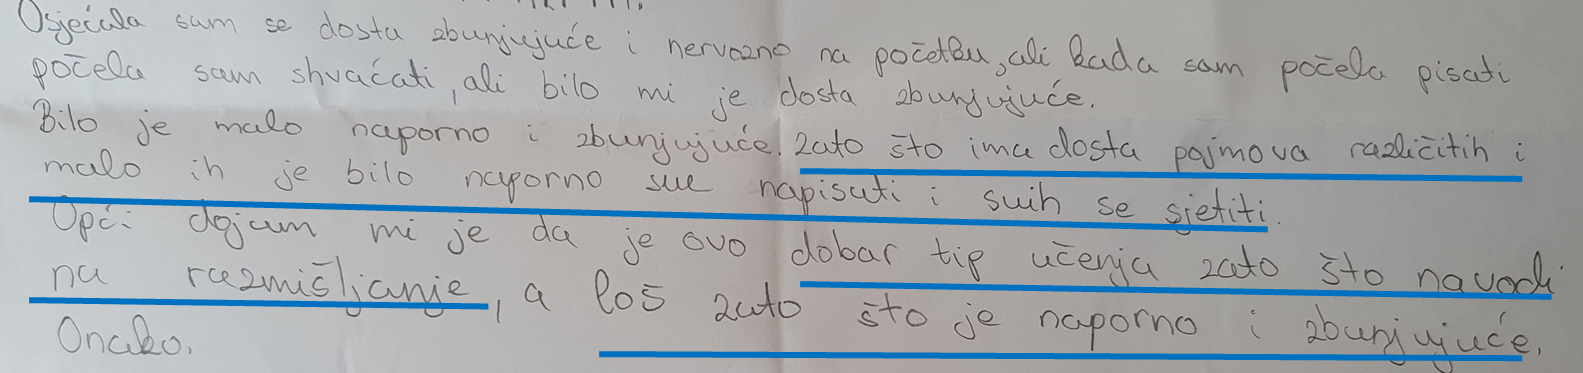 Osjećala sam se dosta zbunjujuće i nervozno na početku, ali kada sam počela pisati
počela sam shvaćati, ali bilo mi je dosta zbunjujuće.
Bilo je malo naporno i zbunjujuće. Zato što ima dosta pojmova različitih i
malo ih je bilo naporno sve napisati i svih se sjetiti.
Opći dojam mi je da je ovo dobar tip učenja zato što navodi
na razmišljanje, a loš zato što je naporno i zbunjujuće.
Onako.